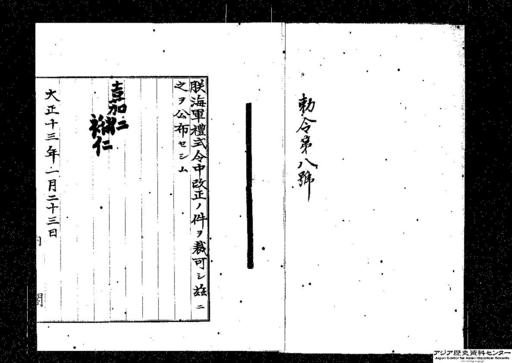 勅令第八號
朕海軍禮式令中改正ノ件ヲ裁可シ茲ニ
之ヲ公布セシム
嘉仁
裕仁
大正十三年一月二十三日
アジア歴史資料センター
Japan Center for Asian Historical Records